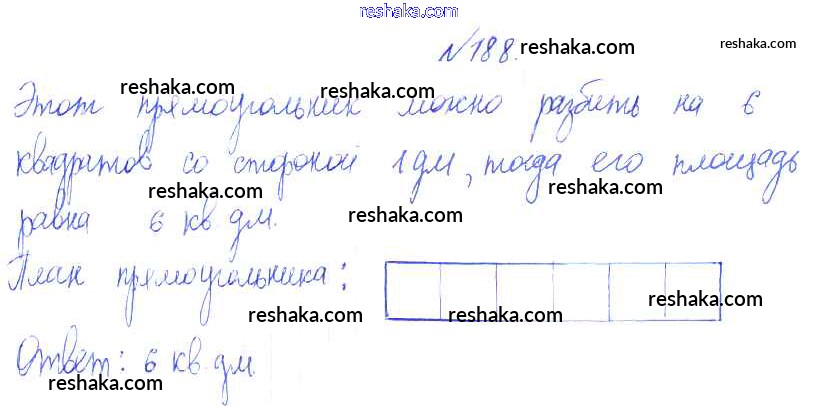 reshaka.com
№188. reshaka.com reshaka.com
reshaka.com reshaka.com
Этот прямоугольник можно разбить на 6
reshaka.com
квадратов со стороной 1 дм, тогда его площадь
reshaka.com reshaka.com reshaka.com
равна 6 кв. дм.
План прямоугольника:
reshaka.com reshaka.com reshaka.com
Ответ: 6 кв. дм.
reshaka.com